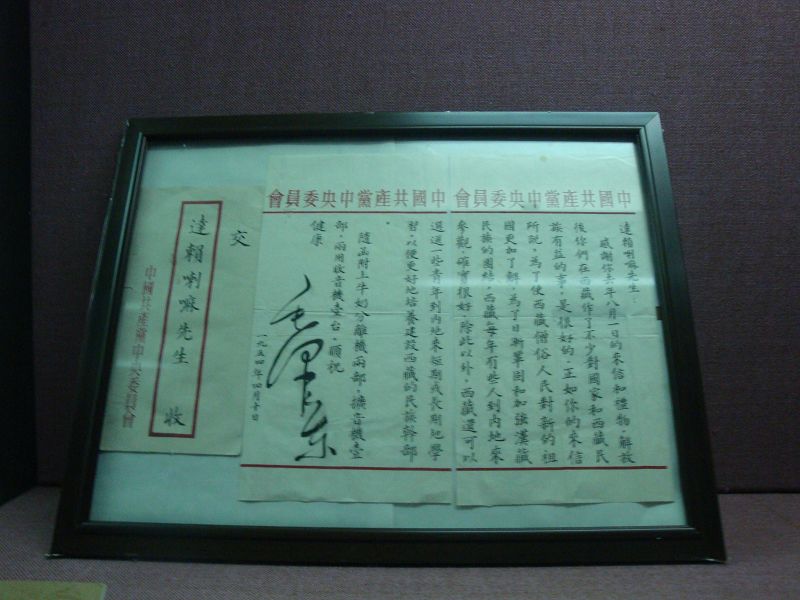 中國共產黨中央委員會
達賴喇嘛先生：
感謝你去年八月一日的來信和禮物。解放
後你們在西藏作了不少對國家和西藏民
族有益的事，是很好的。正如你的來信
所說，為了使西藏僧俗人民對新的祖
國更加了解，為了日新鞏固和加強漢藏
民族的團結，西藏每年有些人到內地來
參觀，確實很好。除此以外，西藏還可以
中國共產黨中央委員會
選送一些青年到內地來短期或長期地學
習，以便更好地培養建設西藏的民族幹部
隨函附上牛奶分離機兩部，擴音機壹
部，兩用收音機壹台。順祝
健康
毛澤東
一九五四年四月十日
交
達賴喇嘛先生 收
中國共產黨中央委員會